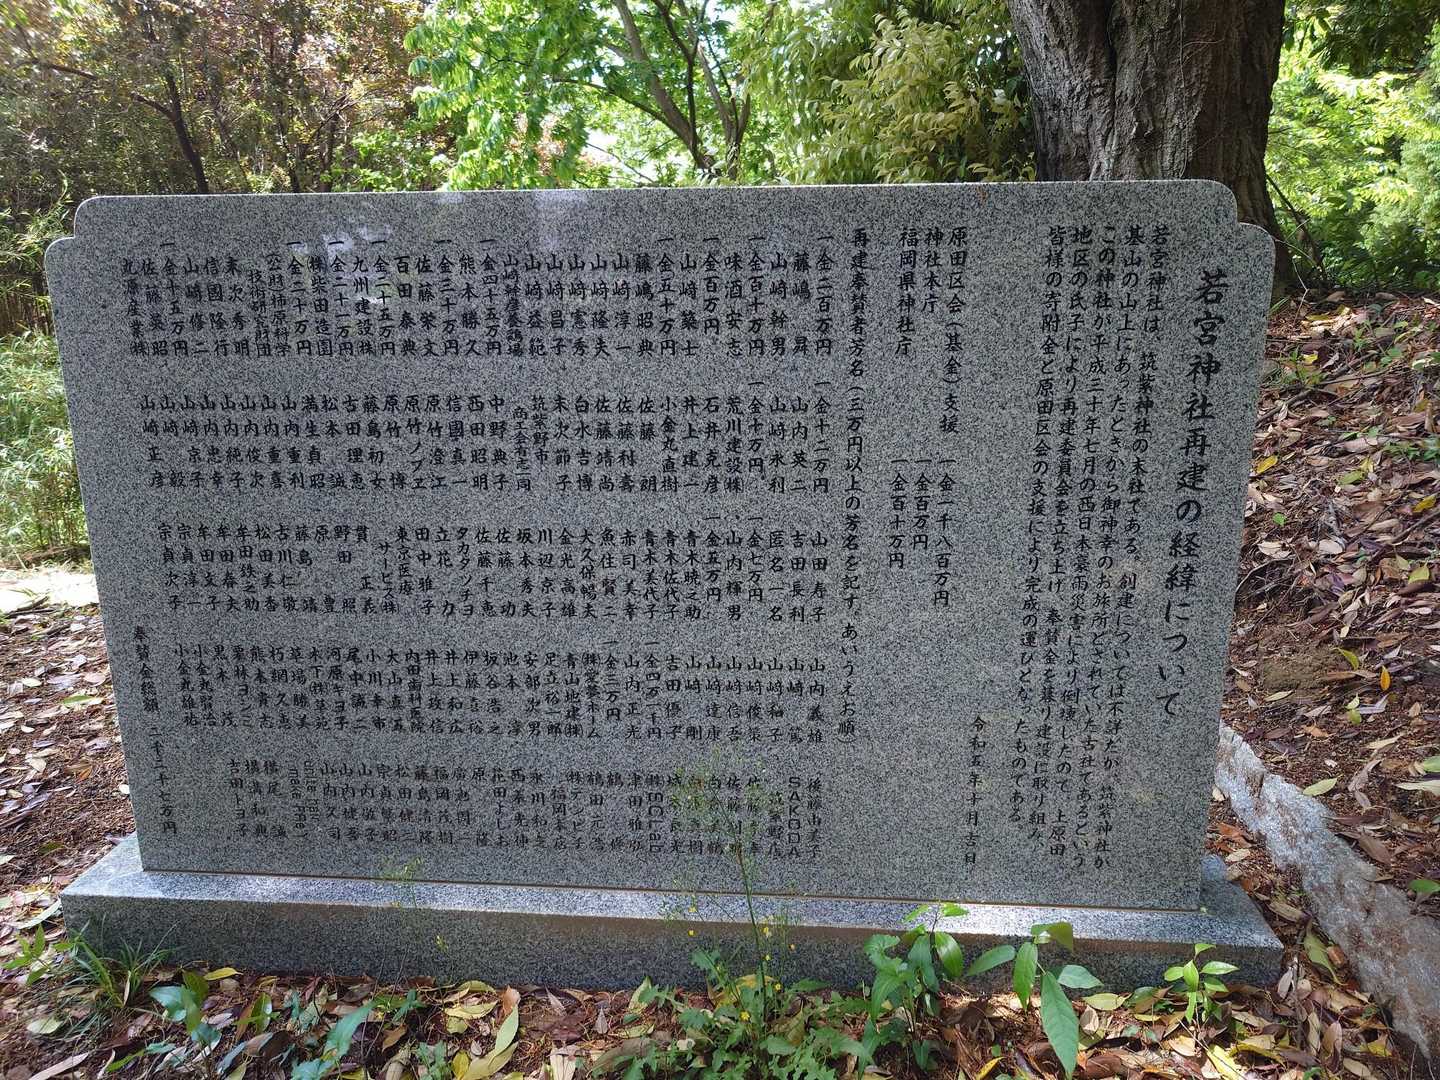 若宮神社再建の経緯について
若宮神社は、筑紫神社の末社である。創建については不詳だが、筑紫神社が
基山の山上にあったときから御神幸のお旅所とされていた古社であるという
この神社が平成三十年七月の西日本豪雨災害により倒棟したので、上原田
地区の氏子により再建委員会を立ち上げ、奉賛金を募り建設に取り組み、
皆様の寄附金と原田区会の支援により完成の運びとなったものである。
令和五年十月吉日
原田区会(基金)支援 一金一千八百万円
神社本庁 一金百万円
福岡県神社庁 一金百十万円
再建奉賛者芳名(三万円以上の芳名を記す。あいうえお順)
一金二百万円
藤嶋 昇
山﨑幹男
一金百十万円
味酒安志
一金百万円
山﨑築士
一金五十万円
藤嶋昭典
山﨑淳一
山﨑隆夫
山﨑憲秀
山﨑昌子
山﨑益範
山﨑種畜養鶏場
一金四十五万円
熊本勝久
一金三十万円
佐藤栄文
百田泰典
一金二十五万円
九州建設㈱
一金二十一万円
㈱柴田造園
一金二十万円
末次秀明
山﨑修二
信國隆行
一金十五万円
佐藤英昭
九原産業㈱
一金十二万円
山内英二
山﨑永利
一金十万円
荒川建設㈱
石井克彦
井上建一
小金丸直樹
佐藤 朗
佐藤利壽
佐藤靖尚
白水吉博
末次節子
筑紫野市
商工会有志一同
中野典子
西田昭明
信國真一
原竹澄江
原竹ノブヱ
原竹 博
藤島初女
古田理恵
松本 誠
満生貞昭
山内重利
山内重喜
山内俊次
山内純子
山内忠幸
山﨑京子
山﨑 毅
山﨑正彦
山田寿子
吉田長利
匿名一名
一金七万円
山内輝男
一金五万円
青木暁之助
青木佐代子
青木美代子
赤司美幸
魚住賢二
大久保暢夫
金光高雄
川辺京子
坂本秀夫
佐藤 功
佐藤千恵
タカタツチヨ
立花 力
田中雅子
東京医療
サービス㈱
貫 正義
野田 照
原 豊
藤島 靖
古川仁敬
松田美香
牟田鉄之助
牟田春夫
牟田文子
宗貞淳一
宗貞次子
山内義雄
山﨑 篤
山﨑和子
山﨑俊策
山﨑信吾
山﨑達康
山﨑 剛
吉田停子
一金四万一千円
山内正光
一金三万円
㈱愛夢ホーム
青山地建㈱
足立裕一郎
安部次男
池本 淳
板谷浩之
伊藤喜裕
井上和広
井上政信
内田歯科医院
大山真五
小川幸市
尾中誠二
河原キヨ子
木下㈱草苑
草場勝美
朽網久恵
熊本貴志
栗林ヨシミ
黒木 茂
小金丸賢治
小金丸雄祐
後藤由美子
SAKODA
筑紫野店
津田雅弘
鶴 修
鶴田元浩
永川和之
西 基光伸
花田よしお
原 隆
廣恵周一
福岡茂樹
藤島清隆
松田健三
宗貞繁昭
山内敏子
山内健吾
山内久司
横尾 誠
横溝和典
吉田トヨ子
奉賛金総額 二千二十七万円